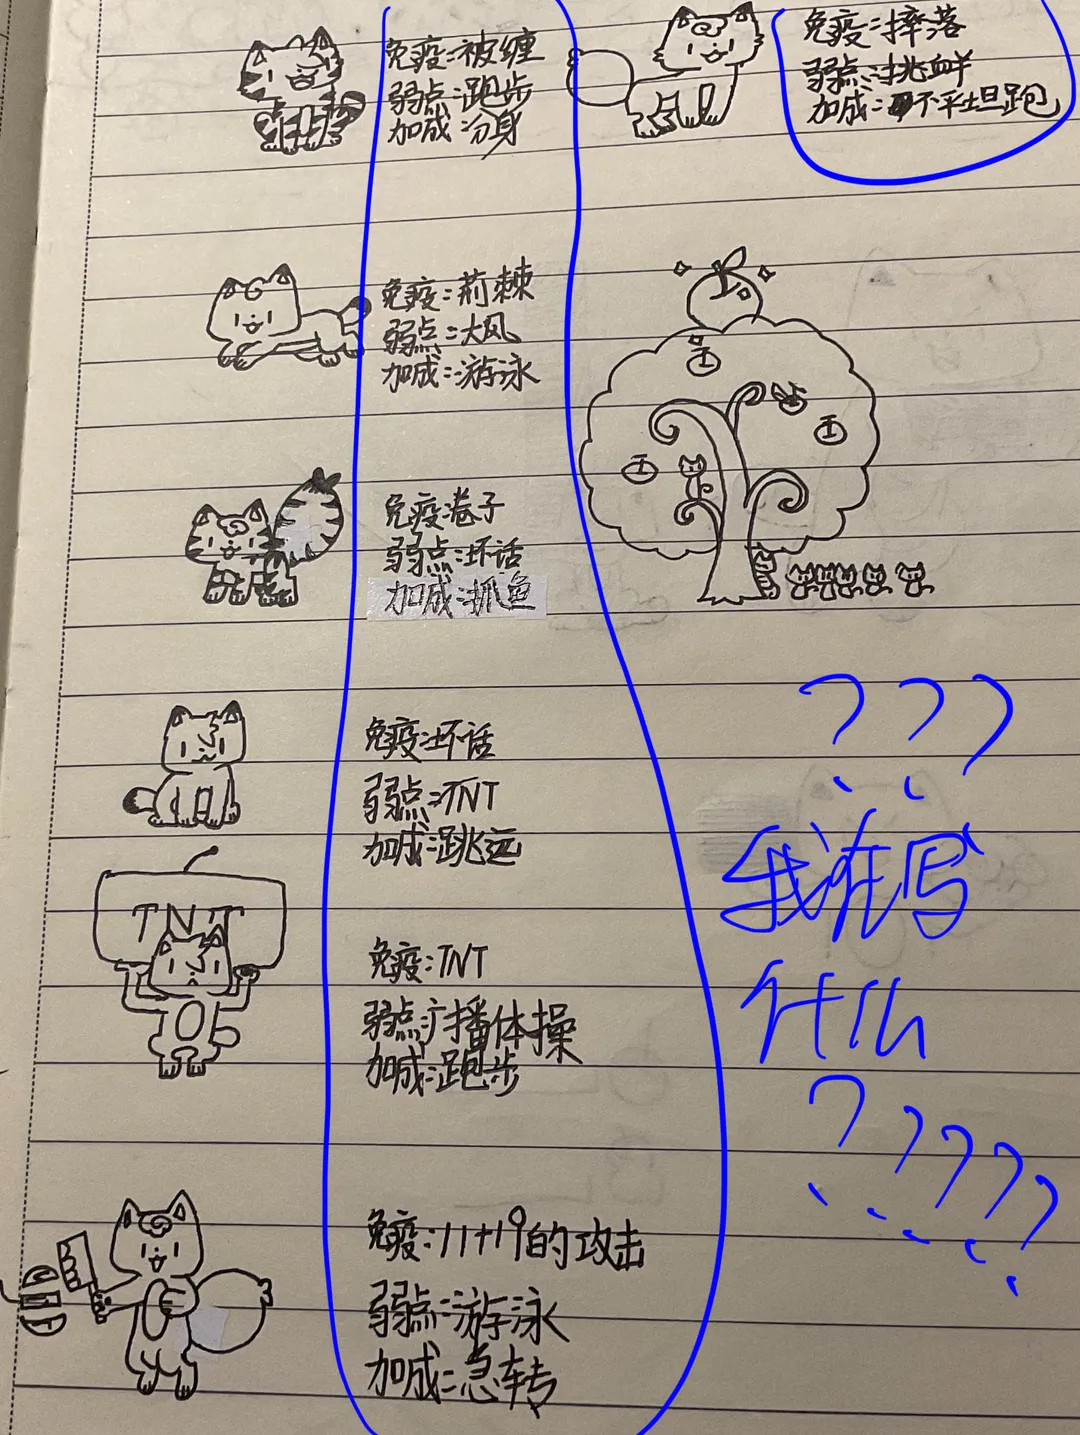 免疫:被缠
弱点:跑步
加成:分身
免疫:摔落
弱点:挑衅
加成:不平坦跑
免疫:荆棘
弱点:大风
加成:游泳
免疫:卷子
弱点:坏话
加成:抓鱼
免疫:坏话
弱点:TNT
加成:跳远
TNT
免疫:TNT
弱点:广播体操
加成:跑步
免疫:11+19的攻击
弱点:游泳
加成:急转
???
我在写
什么
?????